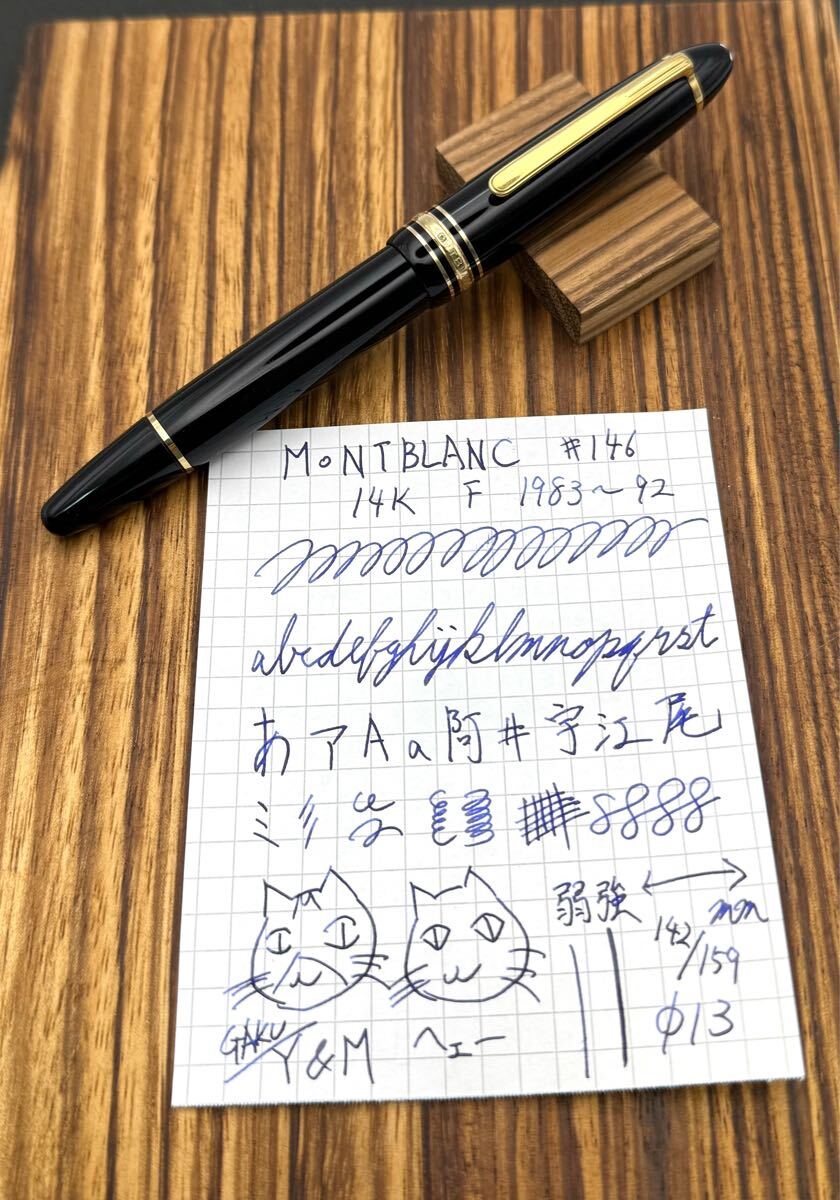 MONTBLANC #146
14K F 1983〜92
abcdefghijklmnopqrst
あアAa阿井宇江尾
弱強 mm
142/159
φ13
GAKU/Y&M ヘェー